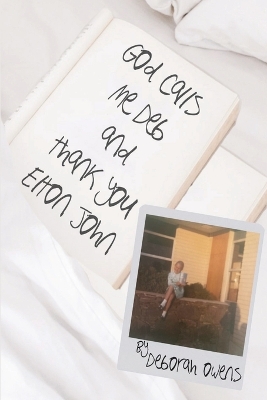 GOD CALLS
ME DEB
and
thank you
Elton John
By
DEBORAH OWENS